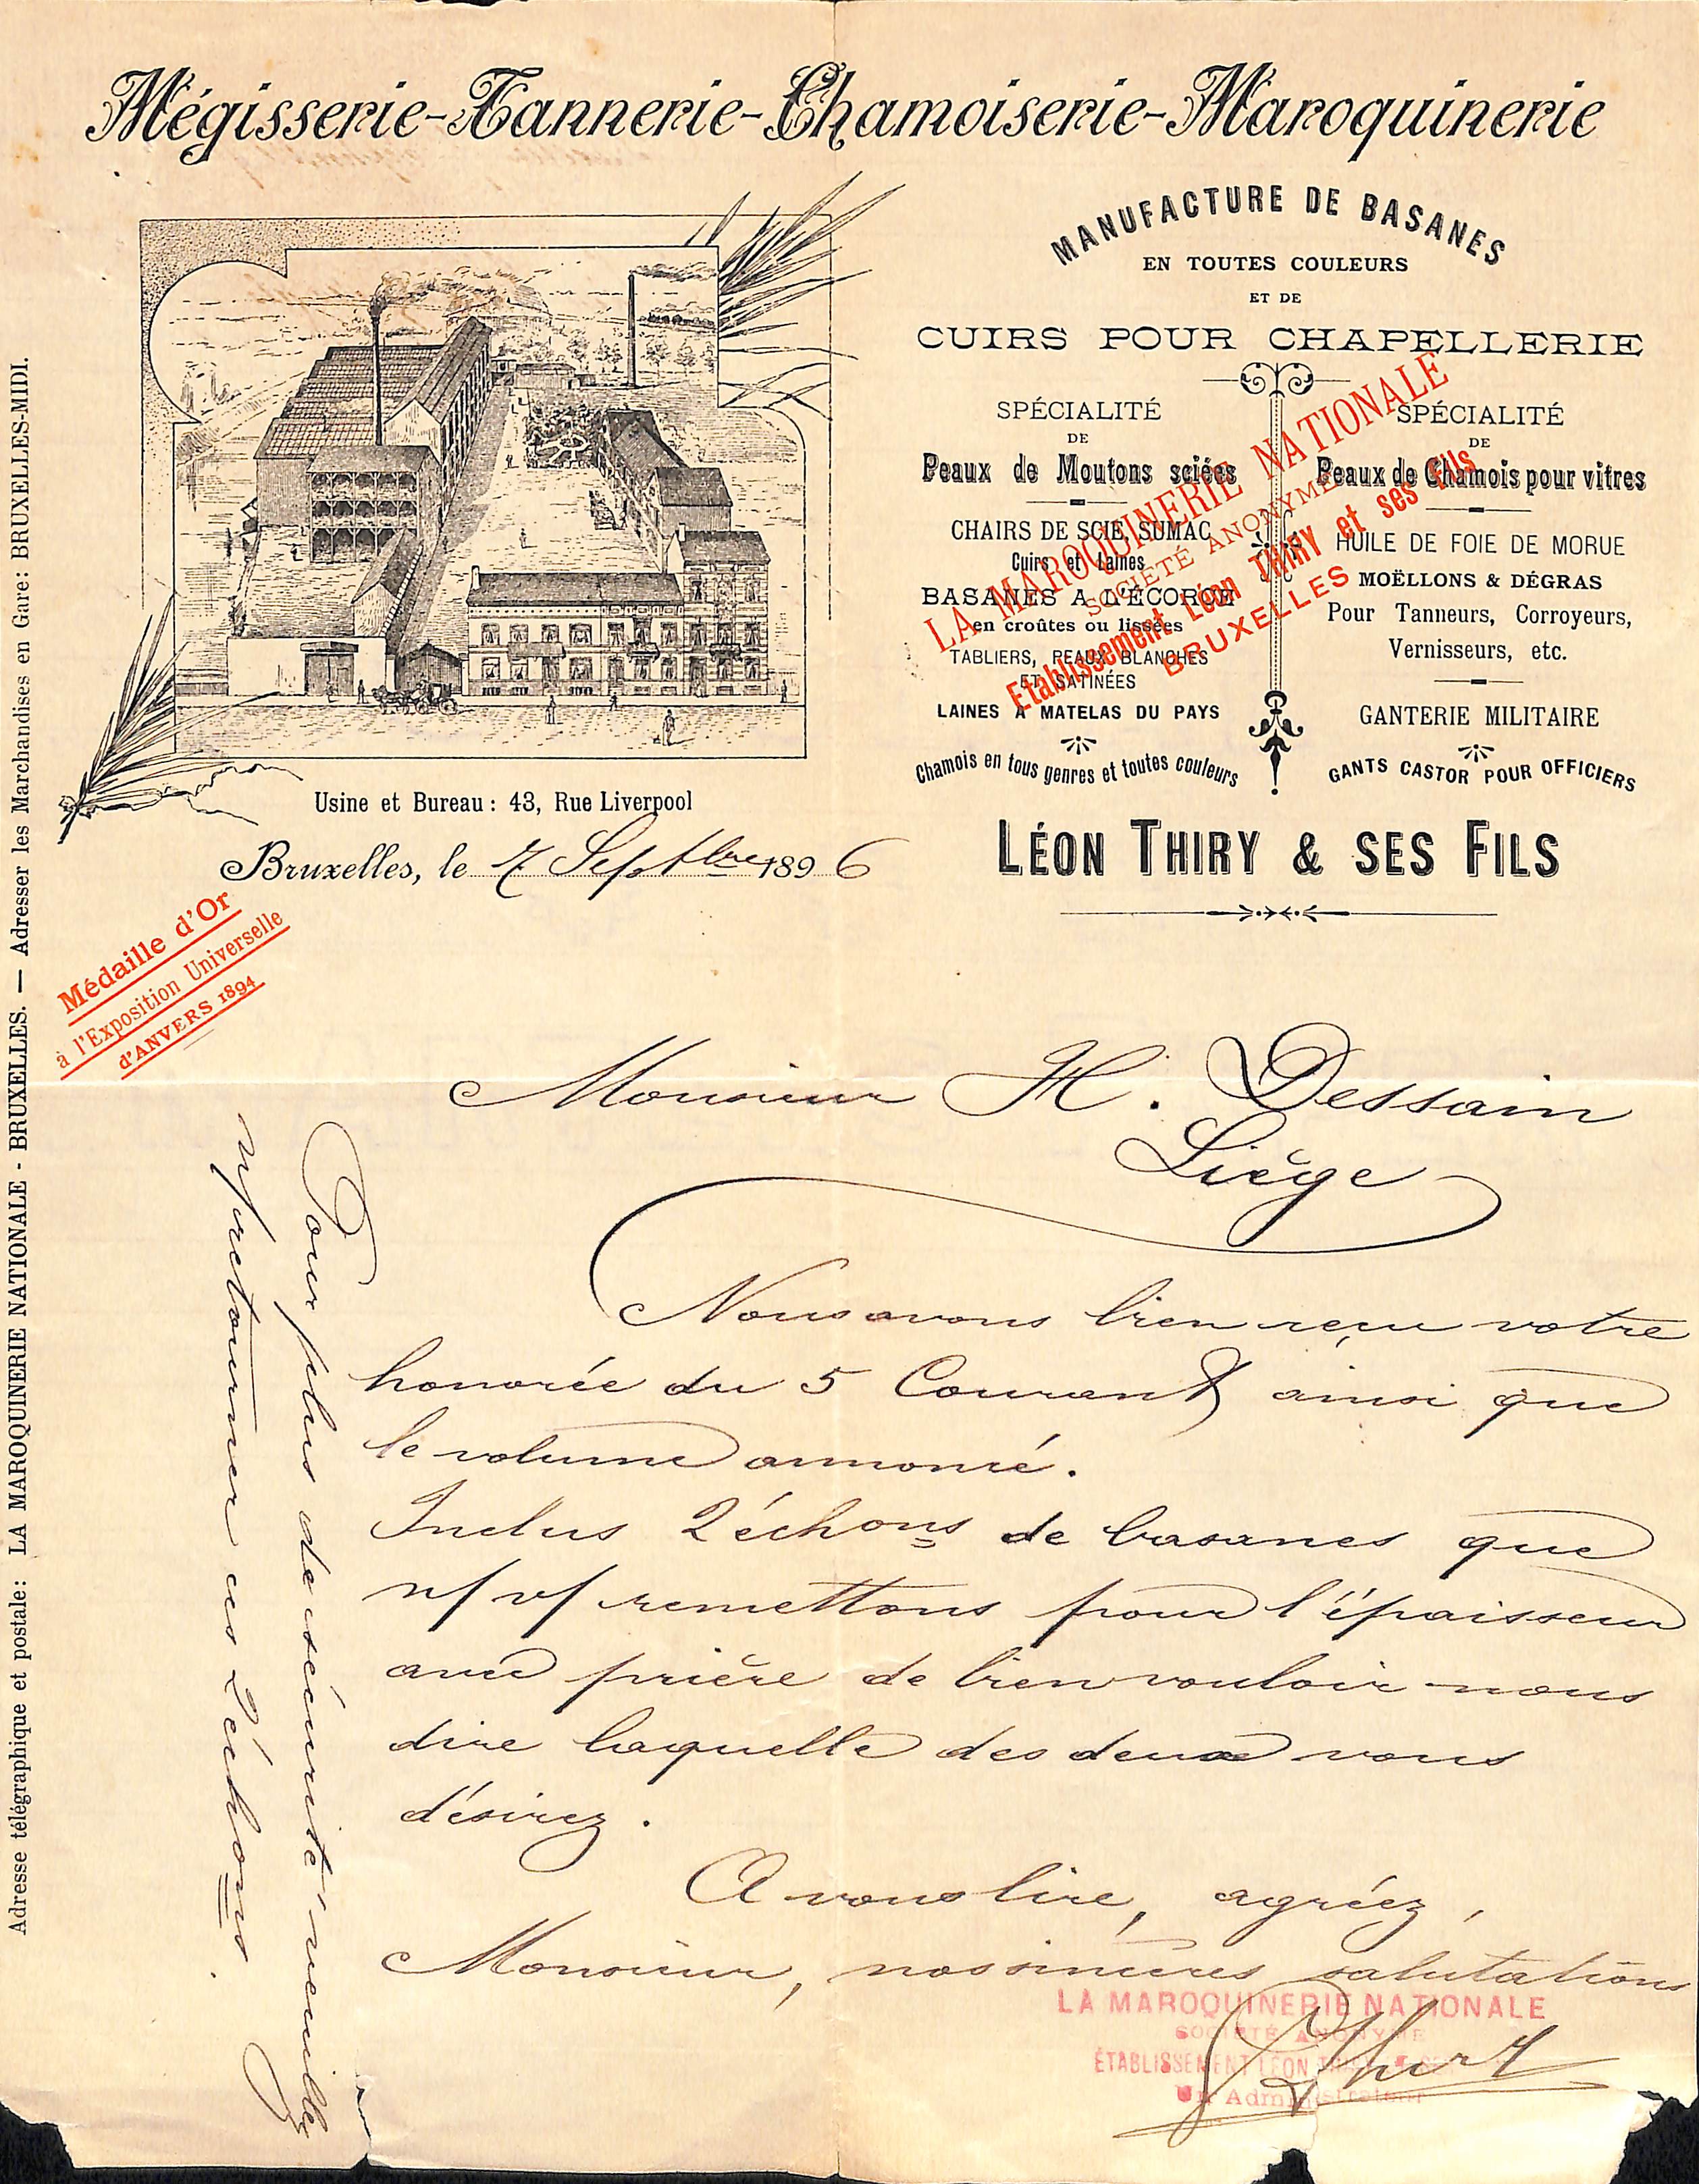 Mégisserie-Tannerie-Chamoiserie-Maroquinerie
MANUFACTURE DE BASANES
EN TOUTES COULEURS
ET DE
CUIRS POUR CHAPELLERIE
SPÉCIALITÉ
DE
Peaux de Moutons sciées
CHAIRS DE SCIE, SUMAC
Cuirs et Laines
BASANES A L'ÉCORCE
en croûtes ou lissées
TABLIERS, PEAUX BLANCHES
ET SATINÉES
LAINES A MATELAS DU PAYS
Chamois en tous genres et toutes couleurs
SPÉCIALITÉ
DE
Peaux de Chamois pour vitres
HUILE DE FOIE DE MORUE
MOËLLONS & DÉGRAS
Pour Tanneurs, Corroyeurs,
Vernisseurs, etc.
GANTERIE MILITAIRE
GANTS CASTOR POUR OFFICIERS
LA MAROQUINERIE NATIONALE
SOCIÉTÉ ANONYME
Etablissement Léon THIRY et ses Fils
BRUXELLES
LÉON THIRY & SES FILS
Usine et Bureau : 43, Rue Liverpool
Bruxelles, le 7 Septbre 1896
Médaille d'Or
à l'Exposition Universelle
d'ANVERS 1894
Adresse télégraphique et postale: LA MAROQUINERIE NATIONALE - BRUXELLES. — Adresser les Marchandises en Gare: BRUXELLES-MIDI.
Monsieur H. Dessain
Liège
Nous avons bien reçu votre
honorée du 5 Courant ainsi que
le volume annoncé.
Inclus 2 échons de basanes que
n/ v/ remettons pour l'épaisseur
avec prière de bien vouloir nous
dire laquelle des deux vous
désirez.
A vous lire, agréez,
Monsieur, nos sincères salutations
LA MAROQUINERIE NATIONALE
SOCIÉTÉ ANONYME
ÉTABLISSEMENT LÉON THIRY
Un Administrateur
Pour plus de sécurité veuillez
n/ retourner ces 2 échons.